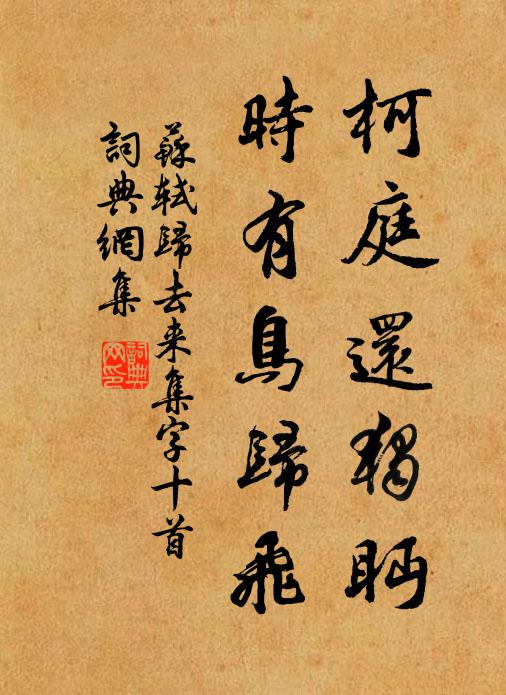 柯庭還獨眄
時有鳥歸飛
蘇軾歸去来集字十首
詞典網集
詞典网印